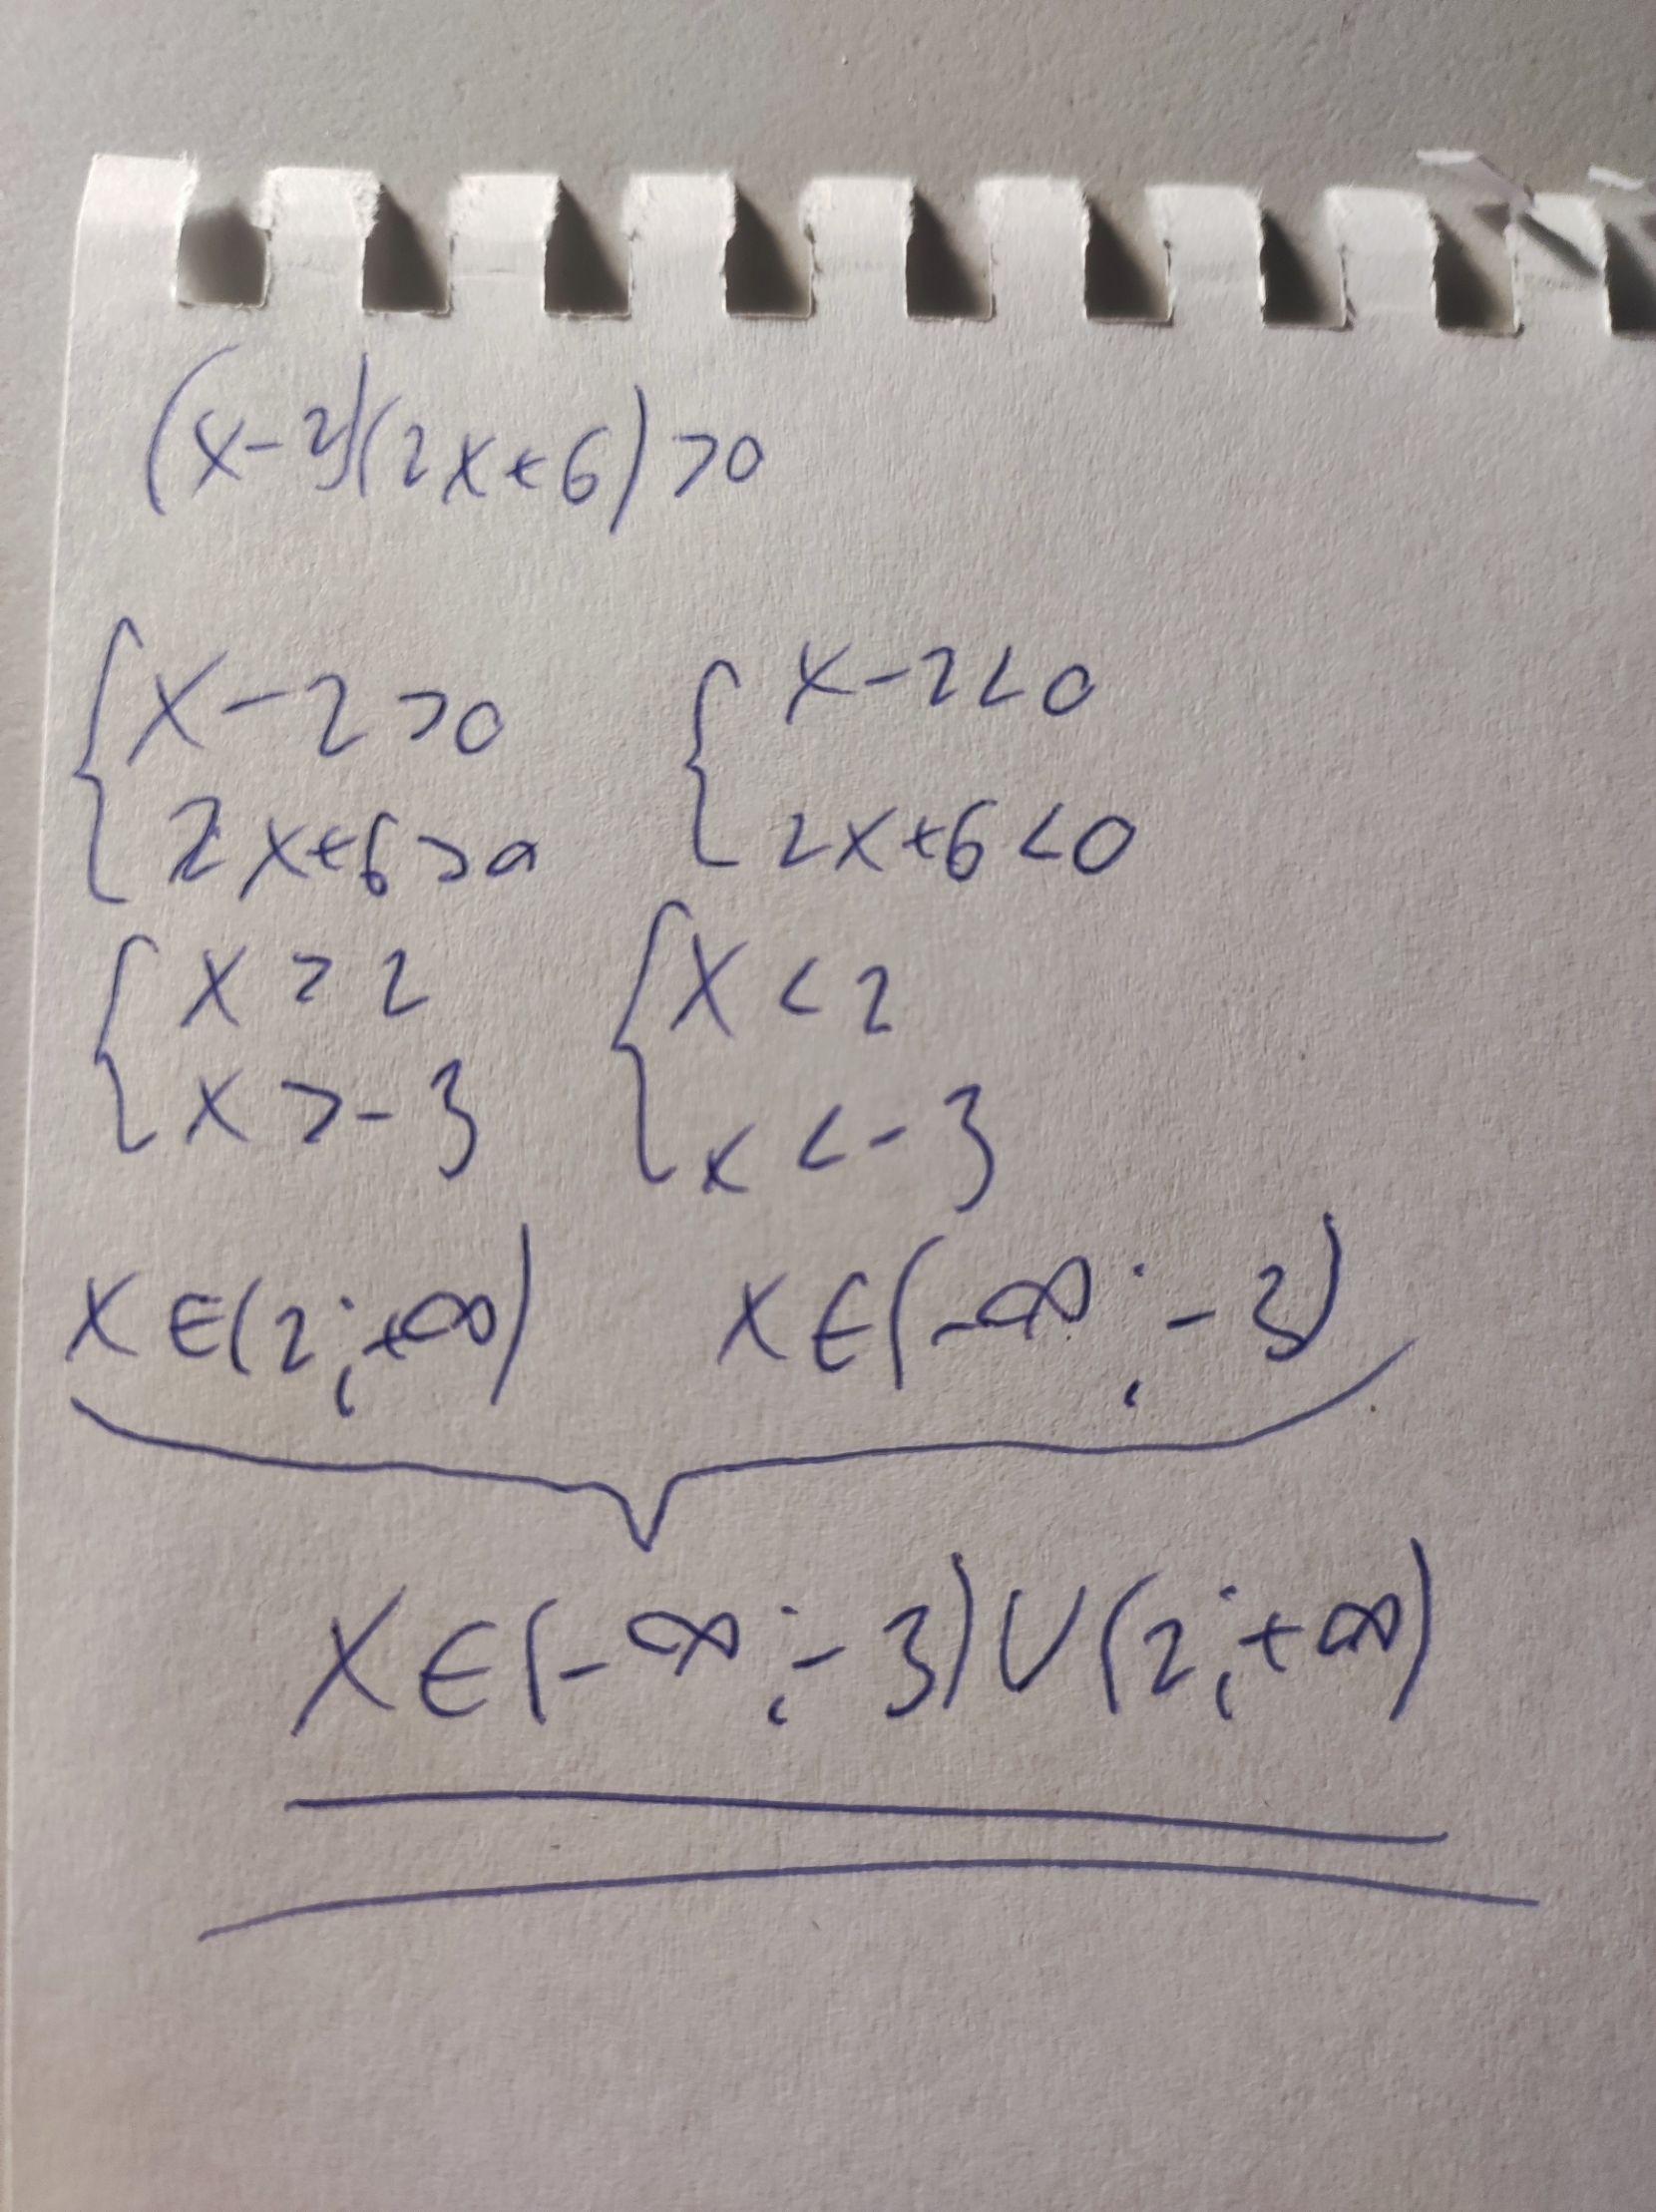 (x-2)(2x+6)>0
{x-2>0 {x-2<0
2x+6>0 2x+6<0
{x>2 {x<2
x>-3 x<-3
x∈(2;+∞) x∈(-∞;-3)
x∈(-∞;-3)∪(2;+∞)